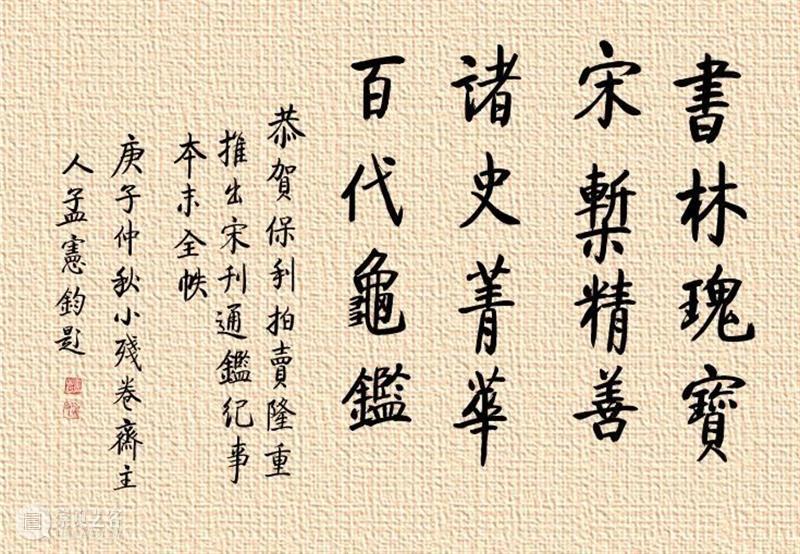 書林瑰寶
宋槧精善
諸史菁華
百代龜鑑
恭賀保利拍賣隆重
推出宋刊通鑑紀事
本末全帙
庚子仲秋小殘卷齋主
人孟憲鈞題